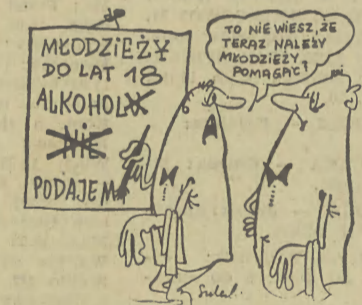 MŁODZIEŻY
DO LAT 18
ALKOHOLU
NIE
PODAJEMY
TO NIE WIESZ, ŻE
TERAZ NALEŻY
MŁODZIEŻY
POMAGAĆ?